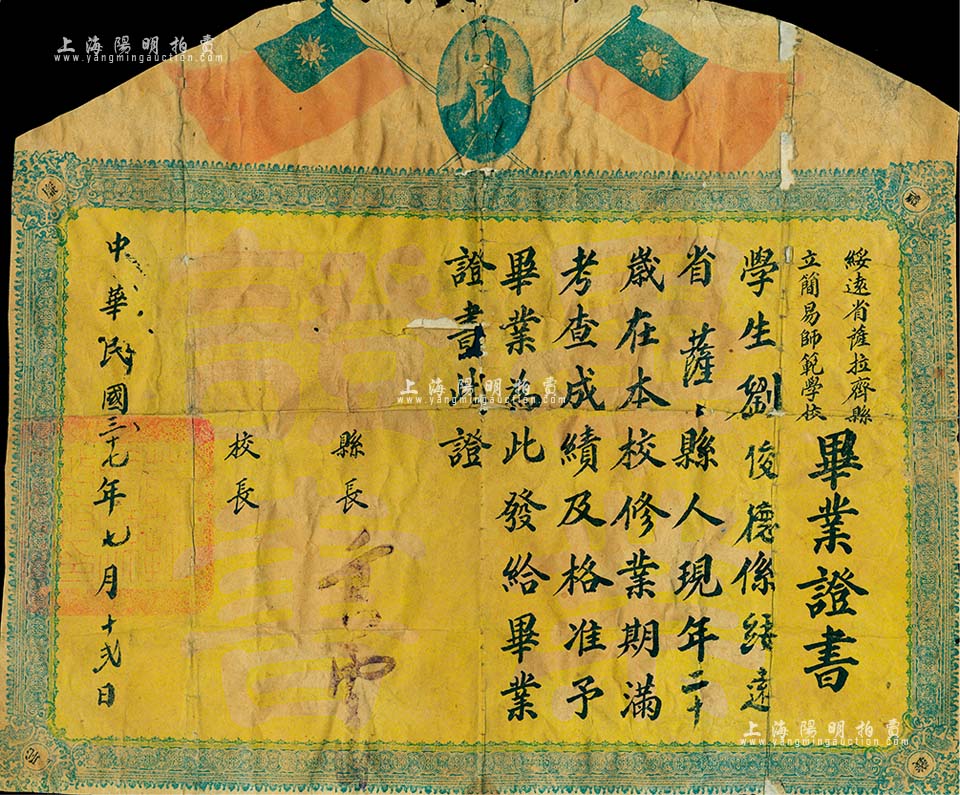 綏遠省薩拉齊縣
立簡易師範學校
畢業證書
學生劉俊德係綏遠
省薩縣人現年二十
歲在本校修業期滿
考查成績及格准予
畢業為此發給畢業
證書此證
縣長
校長
中華民國三十七年七月十弍日
畢業證書
上海陽明拍賣
www.yangmingauction.com
上海陽明拍賣
www.yangmingauction.com
上海陽明拍賣
www.yangmingauction.com